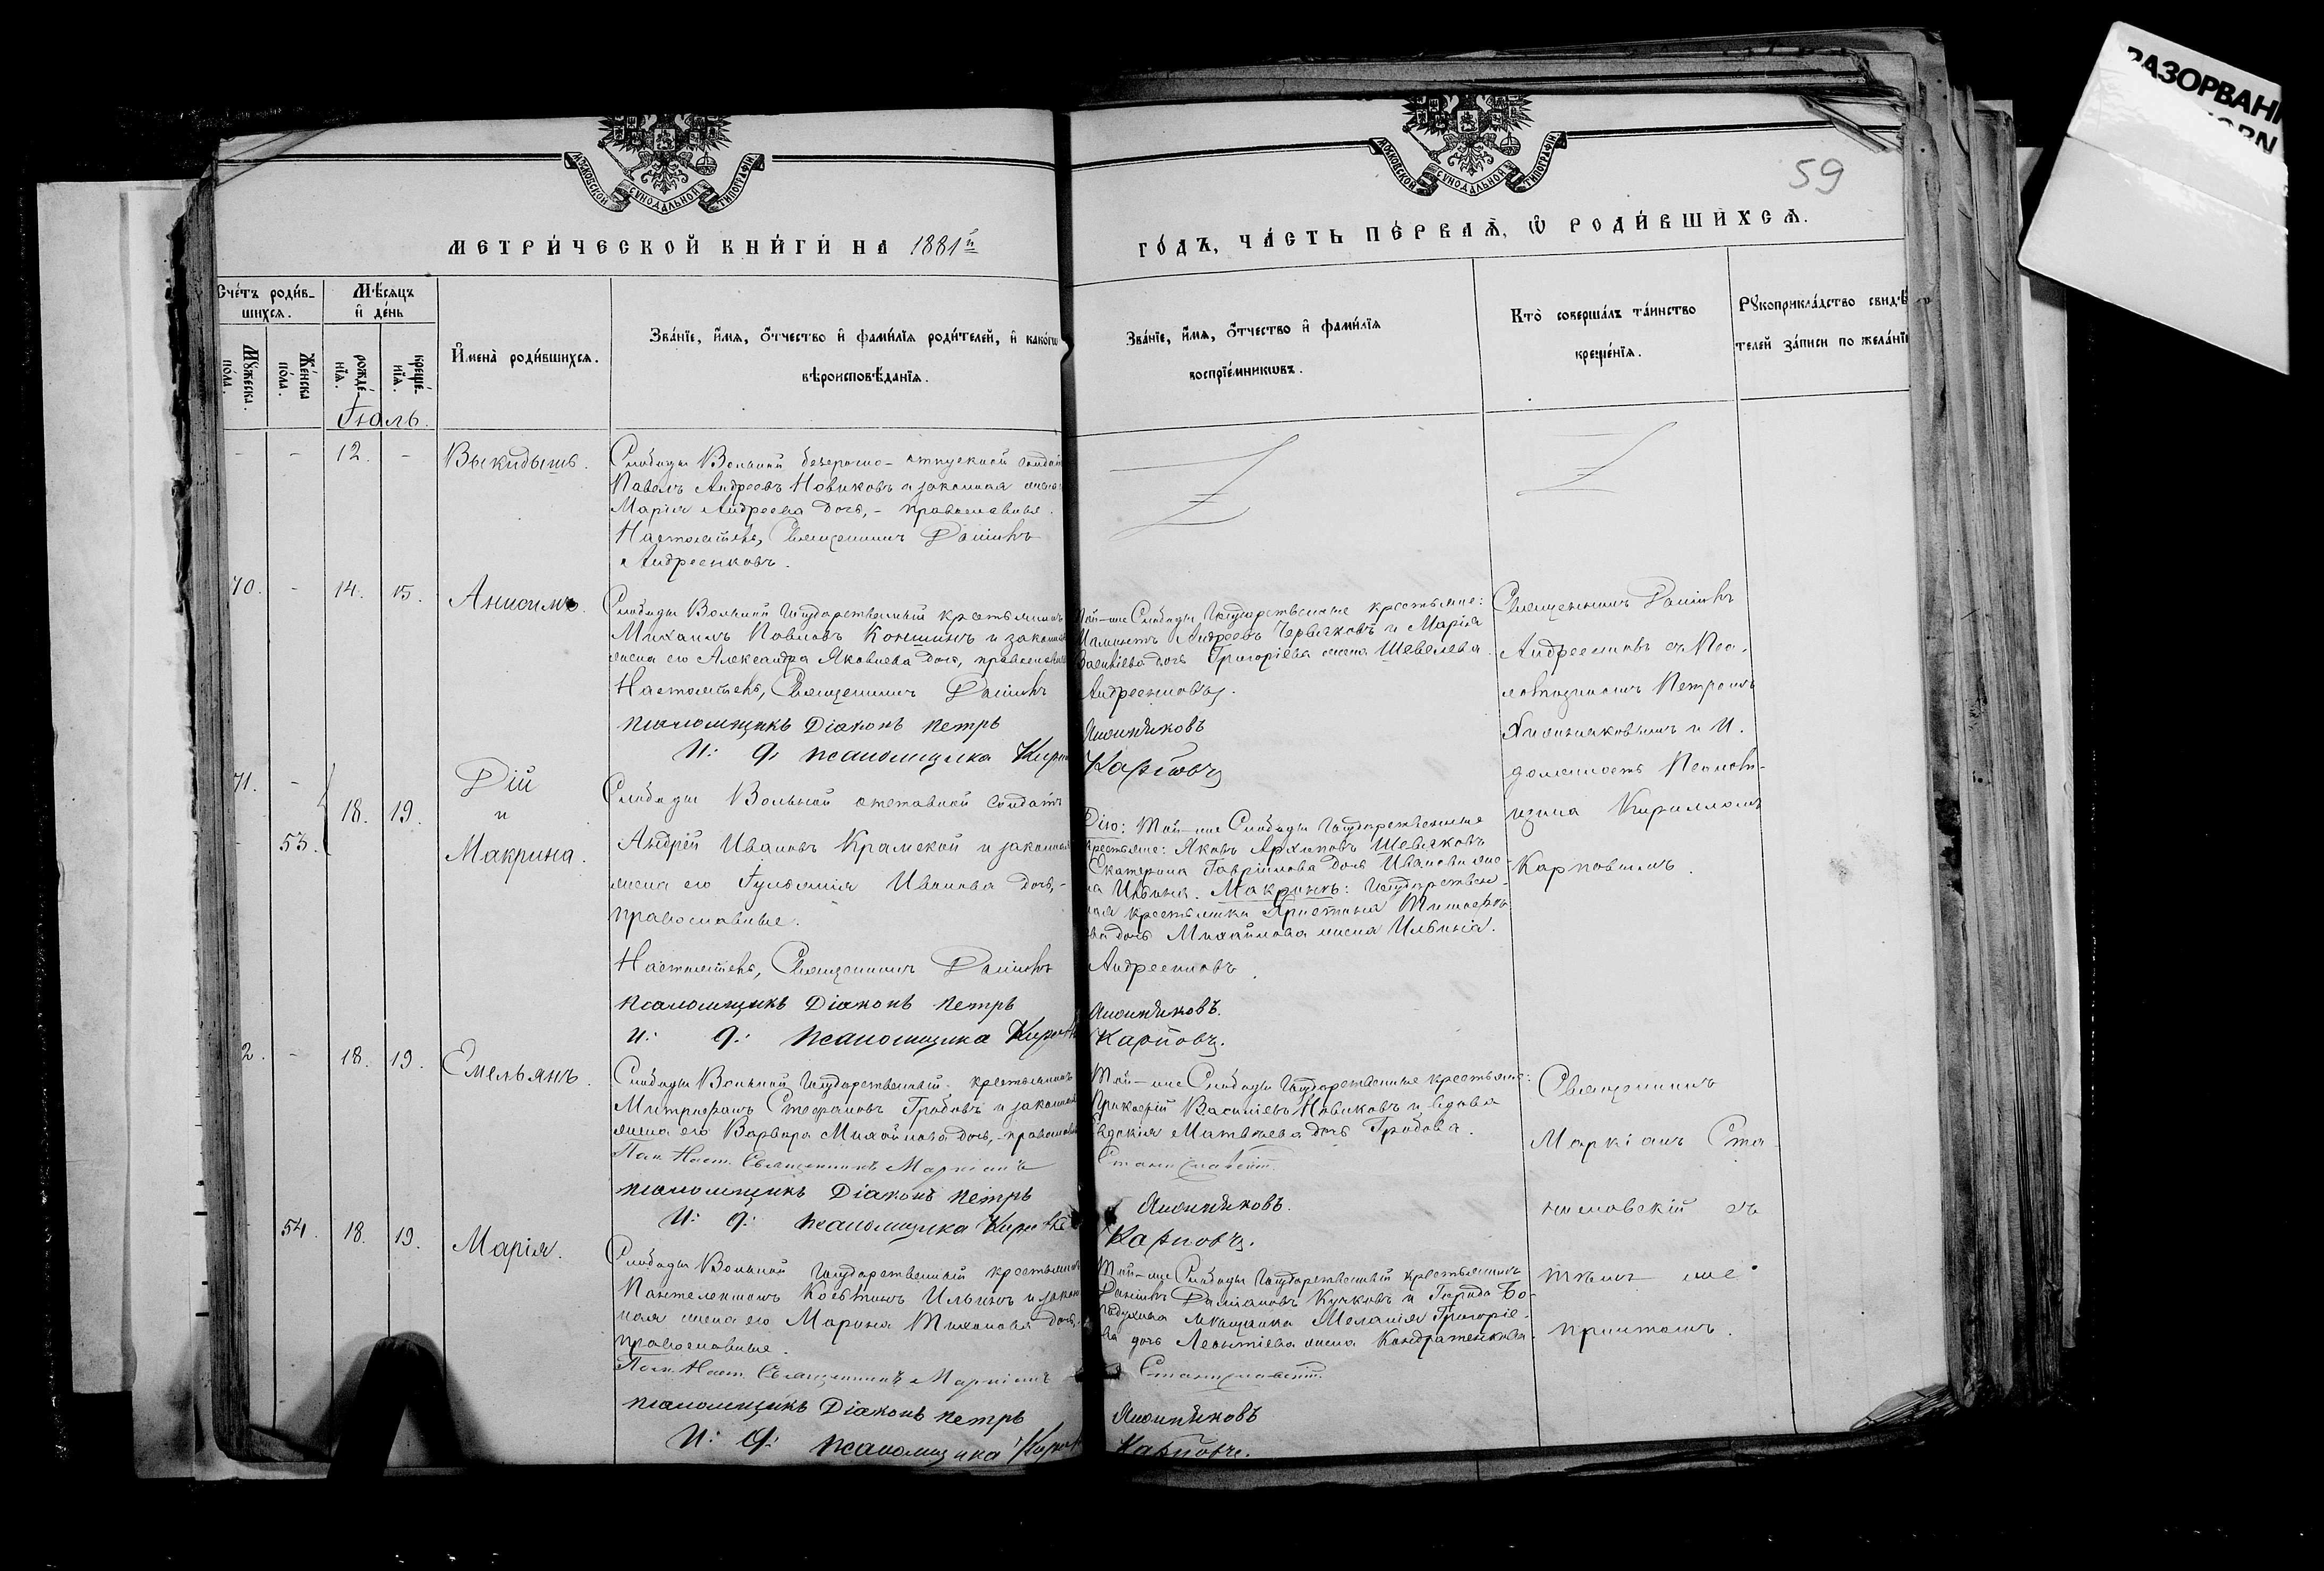 РАЗОРВАН
59
МОСКОВСКОЙ СУНОДАЛЬНОЙ ТИПОГРАФІИ
МОСКОВСКОЙ СУНОДАЛЬНОЙ ТИПОГРАФІИ
МЕТРИ́ЧЕСКОЙ КНИ́ГИ НА 1881й
ГО́ДЪ, ЧА́СТЬ ПЕ́РВАѦ, Ѡ РОДИ́ВШИХСѦ.
Сче́тъ роди́в-
шихсѧ.
Мѣ́сѧцъ
и҆ де́нь
Му́жеска по́ла.
Же́нска по́ла.
рожде́-нїѧ.
креще́-нїѧ.
И҆мена̀ роди́вшихсѧ.
Зва́нїе, и҆́мѧ, ѻ҆́тчество и҆ фами́лїѧ роди́телей, и҆ како́гѡ
вѣроисповѣ́данїѧ.
Зва́нїе, и҆́мѧ, ѻ҆́тчество и҆ фами́лїѧ
воспрїе́мникѡвъ.
Кто̀ соверша́лъ та́инство
креще́нїѧ.
Рꙋкоприкла́дство свидѣ́-
телей за́писи по жела́нїю
Іюль.
- - 12. - Выкидышъ.
Слободы Вольной безсрочно-отпускной солдатъ
Павелъ Андреевъ Новиковъ и законная жена
Марія Андреева дочь, - православныя.
Настоятель, Священникъ Даніилъ
Андреенковъ.
70. - 14. 15. Анисимъ.
Слободы Вольной Государственный крестьянинъ
Михаилъ Павловъ Коншинъ и законная
жена его Александра Яковлева дочь, православные
Настоятель, Священникъ Даніилъ
псаломщикъ Діаконъ Петръ
И: д: псаломщика Кирил
Той-же Слободы Государственные крестьяне:
Андреевъ Червяковъ и Марія
Васильева дочь Григоріева жена Шевелева.
Андреенковъ.
Карповъ
Священникъ Даніилъ
Андреенковъ съ Пса-
ломщикомъ Петромъ
и И.
должность Псалом-
щика Кирилломъ
Карповымъ.
71. - 18. 19. Дій
и
- 53. Макрина.
Слободы Вольной отставной солдатъ
Андрей Ивановъ Крамской и законная
жена его Іуліанія Иванова дочь, -
православные.
Настоятель, Священникъ Даніилъ
псаломщикъ Діаконъ Петръ
и: д: псаломщика Кирил
Дію: Той-же Слободы Государственные
крестьяне: Яковъ Архиповъ Шевляковъ
Екатерина Гавріилова дочь Иванова же-
на Ильина. Макринъ: Государствен-
ная крестьянка Христина Тимофее-
ва дочь Михайлова жена Ильина.
Андреенковъ.
Карповъ.
2. - 18. 19. Емельянъ.
Слободы Вольной Государственный крестьянинъ
Митрофанъ Стефановъ Грибовъ и законная
жена его Варвара Михайлова дочь, - православн
Пом. Наст. Священникъ Маркіанъ
псаломщикъ Діаконъ Петръ
И: д: псаломщика Кирил
Той-же Слободы Государственные крестьяне:
Прокофій Василіевъ Новиковъ и вдова
Евдокія Матвѣева дочь Грибова.
Карповъ.
Священникъ
Маркіанъ Ста-
ниславскій съ
тѣмъ же
причтомъ.
54. 18. 19. Марія.
Слободы Вольной Государственный крестьянинъ
Пантелеимонъ Ильинъ и закон
ная жена его Марина Тихонова дочь,
православные.
Пом. Наст. Священникъ Маркіанъ
псаломщикъ Діаконъ Петръ
И: д: псаломщика Кирил
Той-же Слободы Государственный крестьянинъ
Даніилъ Даміановъ Кучковъ и Города Бо-
годухова мѣщанка Меланія Григоріе-
ва дочь Леонтіева жена Кондратенкова.
Карповъ.